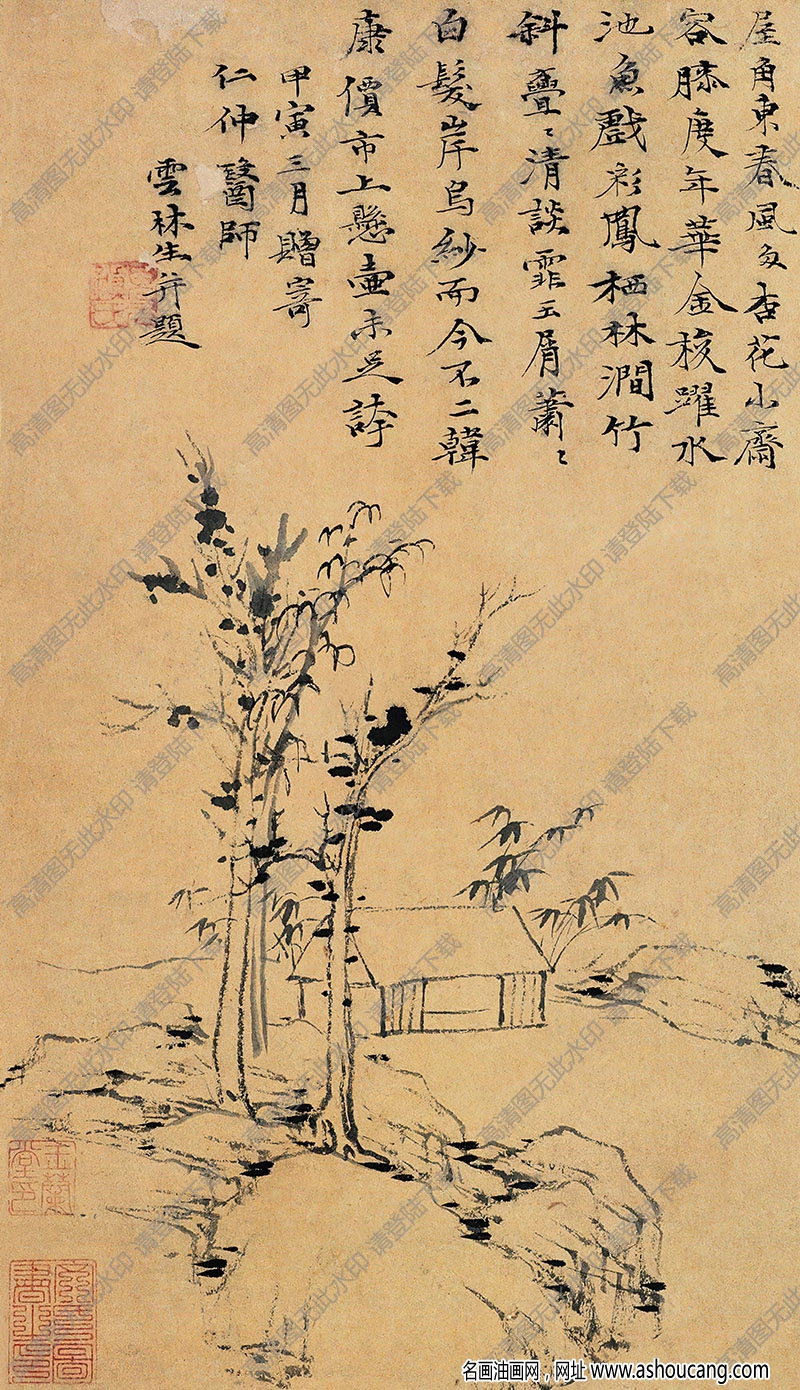 屋角東春風多杏花小齋
容膝度年華金梭躍水
池魚戲彩鳳栖林澗竹
斜亹〻清談霏玉屑蕭〻
白髮岸烏紗而今不二韓
康價市上懸壺未足誇
甲寅三月贈寄
仁仲醫師
雲林生并題
高清图无此水印 请登陆下载
名画油画网，网址 www.ashoucang.com